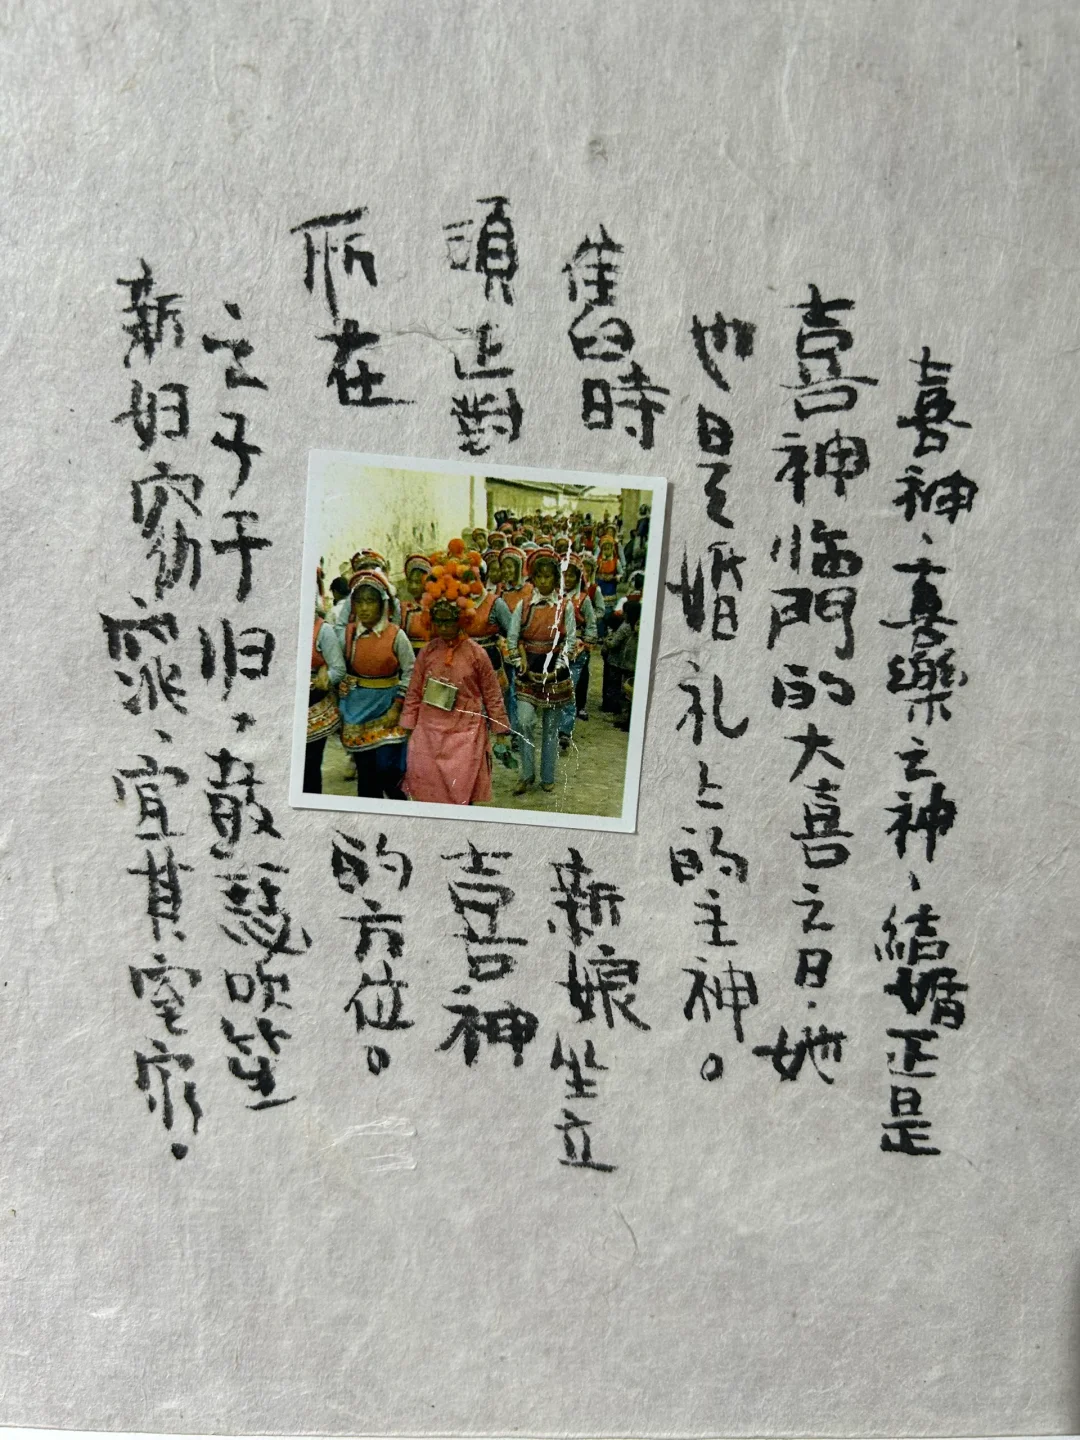 喜神、喜樂之神、結婚正是
喜神临門的大喜之日，她
也是婚礼上的主神。
舊時新娘坐立
須正對喜神
所在的方位。
之子于归，鼓瑟吹笙
新妇窈窕、宜其室家。